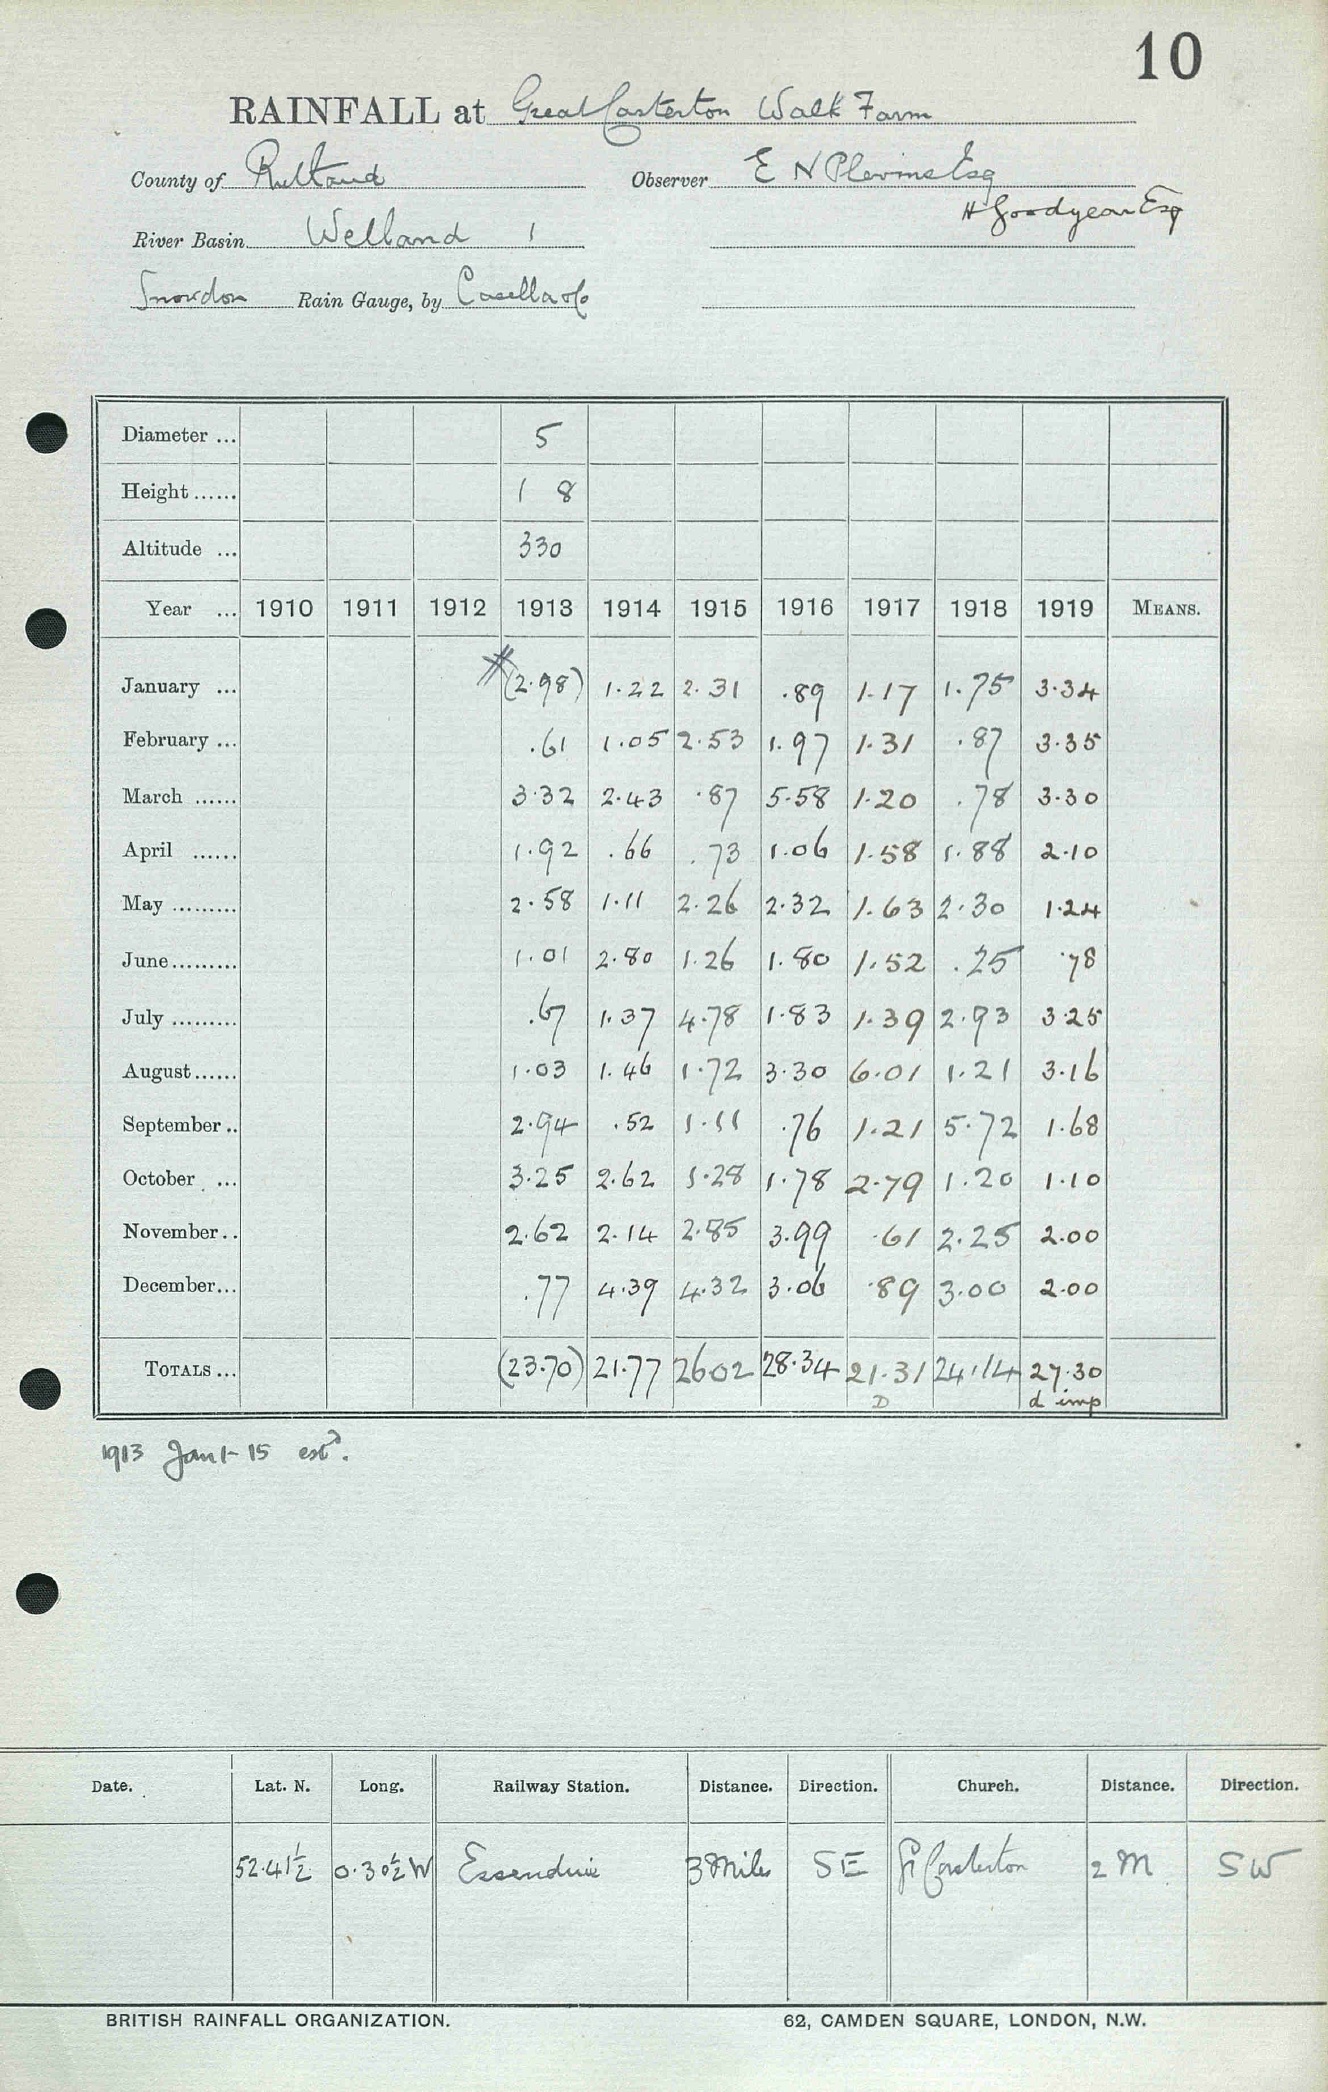 10
RAINFALL at Great Casterton Walk Farm
County of Rutland Observer E N Plevins Esq
H Goodyear Esq
River Basin Welland 1
Snowdon Rain Gauge, by Casella & Co
Diameter ... 5
Height ...... 1 8
Altitude ... 330
Year ... 1910 1911 1912 1913 1914 1915 1916 1917 1918 1919 MEANS.
January ... #(2.98) 1.22 2.31 .89 1.17 1.75 3.34
February ... .61 1.05 2.53 1.97 1.31 .87 3.35
March ...... 3.32 2.43 .87 5.58 1.20 .78 3.30
April ...... 1.92 .66 .73 1.06 1.58 1.88 2.10
May ......... 2.58 1.11 2.26 2.32 1.63 2.30 1.24
June ......... 1.01 2.80 1.26 1.80 1.52 .25 .78
July ......... .67 1.37 4.78 1.83 1.39 2.93 3.25
August ...... 1.03 1.46 1.72 3.30 6.01 1.21 3.16
September .. 2.94 .52 1.11 .76 1.21 5.72 1.68
October ... 3.25 2.62 1.28 1.78 2.79 1.20 1.10
November .. 2.62 2.14 2.85 3.99 .61 2.25 2.00
December ... .77 4.39 4.32 3.06 .89 3.00 2.00
TOTALS ... (23.70) 21.77 2602 28.34 21.31 24.14 27.30
D d imp
1913 Jan 1-15 estd.
Date. Lat. N. Long. Railway Station. Distance. Direction. Church. Distance. Direction.
52.41½ 0.30½ W Essendine 3 Miles SE Gt Casterton 2 M SW
BRITISH RAINFALL ORGANIZATION. 62, CAMDEN SQUARE, LONDON, N.W.